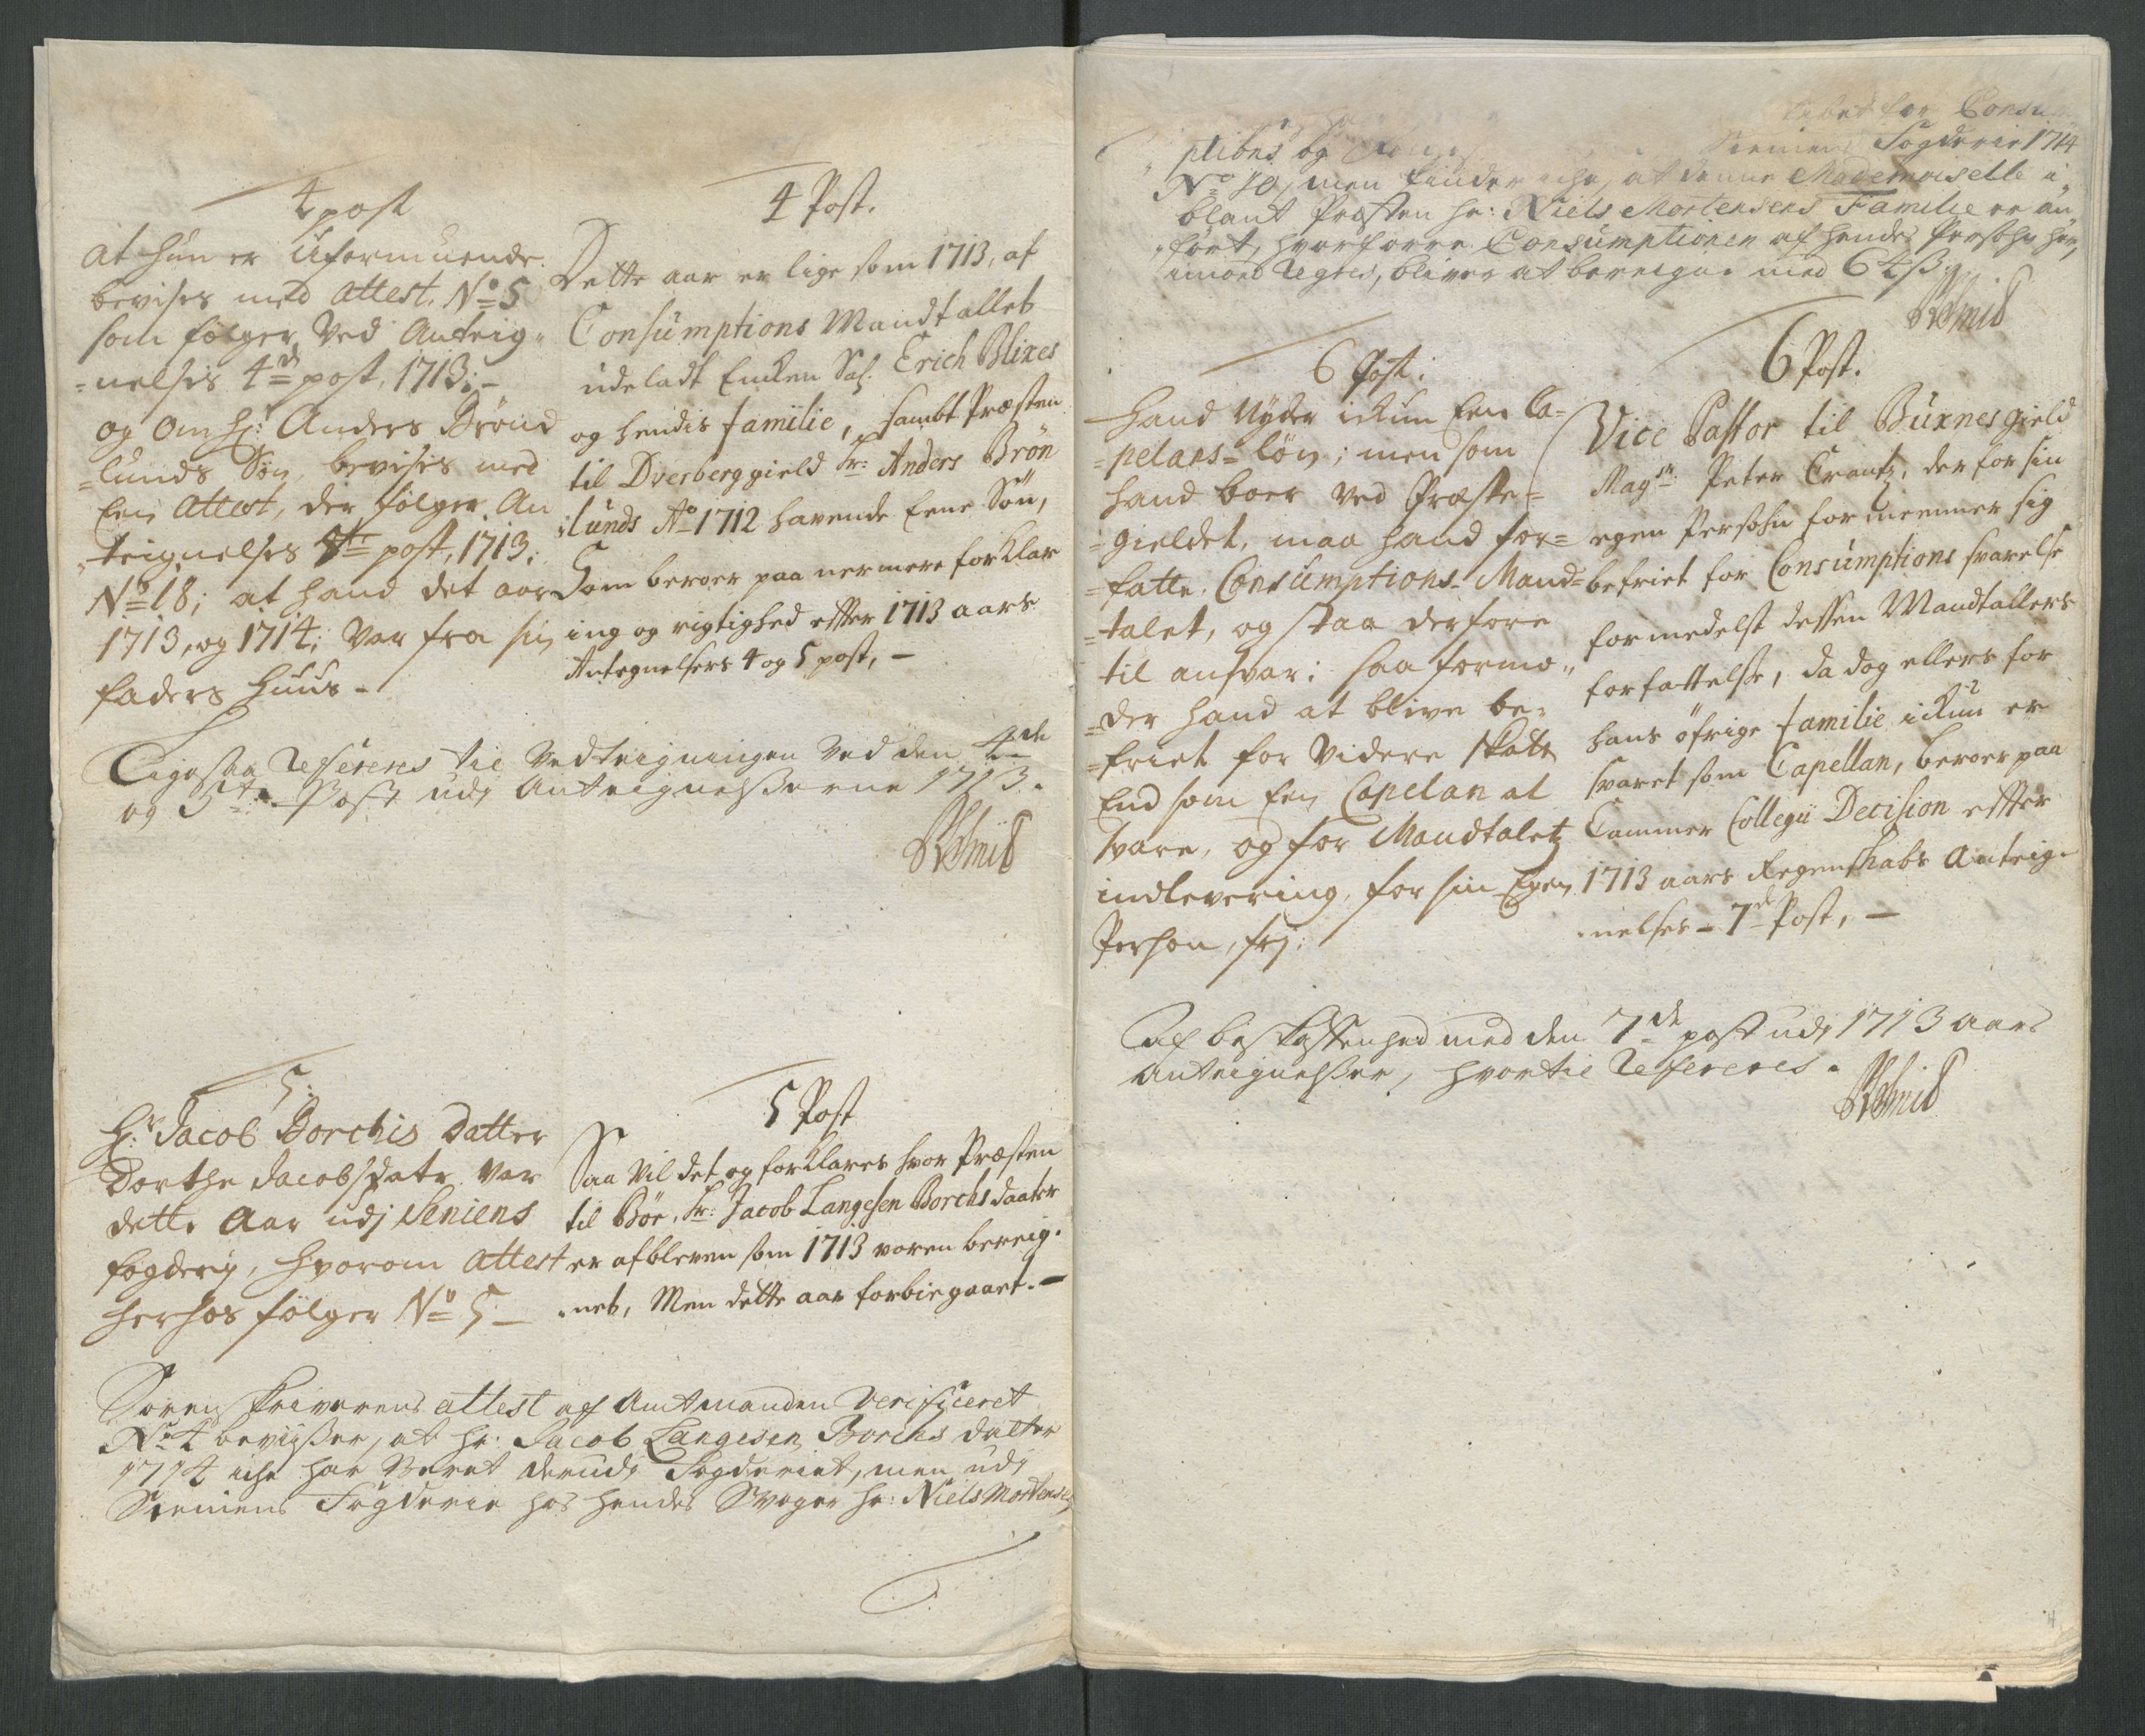 4 post
at hun er Uformuende
bevises med attest. No 5
som følger Ved Anteig-
-nelsis 4de post, 1713;-
og om Hr: Anders Brönd
-lunds Søn, bevises med
Een attest, der følger An
-teignelsis 5te post, 1713;
No 18; at hand det aar
1713, og 1714; Var fra sin
faders huus-
4 Post.
Dette aar er lige som 1713, af
Consumptions Mandtallet
udeladt Encken Sal: Erich Blixes
og hendis familie, sambt Præsten
til Dverberg gield Hr: Anders Brön
lunds Ao 1712 havende Eene Sön,
Som beroer paa nermere forklar
ing og rigtighed effter 1713 aars
Antegnelsers 4 og 5 post, -
Ligesaa Refereres til Vedteigningen Ved den 4de
og 5te Post udj Anteignelsserne 1713.
5:
Hr: Jacob Borchis Datter
Dorthe Jacobsdatr Var
dette Aar udj Seniens
fogderij, hvorom attest
herhos følger No 5 -
5 Post
Saa Vil det og forklares hvor Præsten
til Böe, Hr: Jacob Langesen Borchs daater
er afbleven som 1713 voren bereig-
net, Men dette aar forbiegaaet. -
Sorenskriverens attest af Amtmanden Verificeret
No 4 bevisser, at Hr: Jacob Langesen Borchs datter
1714 iche har Veret derudj Fogderiet, men udj
Seniens Fogderie hos hendes Svoger Hr: Niels Mortensen
for Consu
ptions og Seniens Fogderie 1714
No 10, men finder iche, at denne Mademoiselle i-
blant Præsten Hr: Niels Mortensens Familie er an
ført, hvorforre Consumptionen af hendes Persohn her,
imod Regres, bliver at bereigne med 64 ß
6 Post:
Hand Nyder ickun Een Ca-
-pelans-løn; men som
hand boer Ved Præste-
-gieldet, maa hand for-
-fatte Consumptions-Mand-
-talet, og staa derfore
til ansvar; saa formo-
-der hand at blive be-
-friet for Videre skatt
End som Een Capelan at
svare, og for Mandtaletz
indlevering, for sin Egen
Person, frj:
6 Post.
Vice Pastor til Buxnes gield
Magr Peter Crantz, der for sin
egen Persohn formeener sig
befriet for Consumptions svarelse
formedelst dessen Mandtallers
forfattelse, da dog ellers for
hans öfrige familie ickun er
svaret som Capellan, beroer paa
Cammer Collegii Decision effter
1713 aars Regenskabs Anteig-
-nelses - 7de Post, -
Af beskaffenhed med den 7de post udj 1713 aars
Anteignelsser, hvortil Refereres.